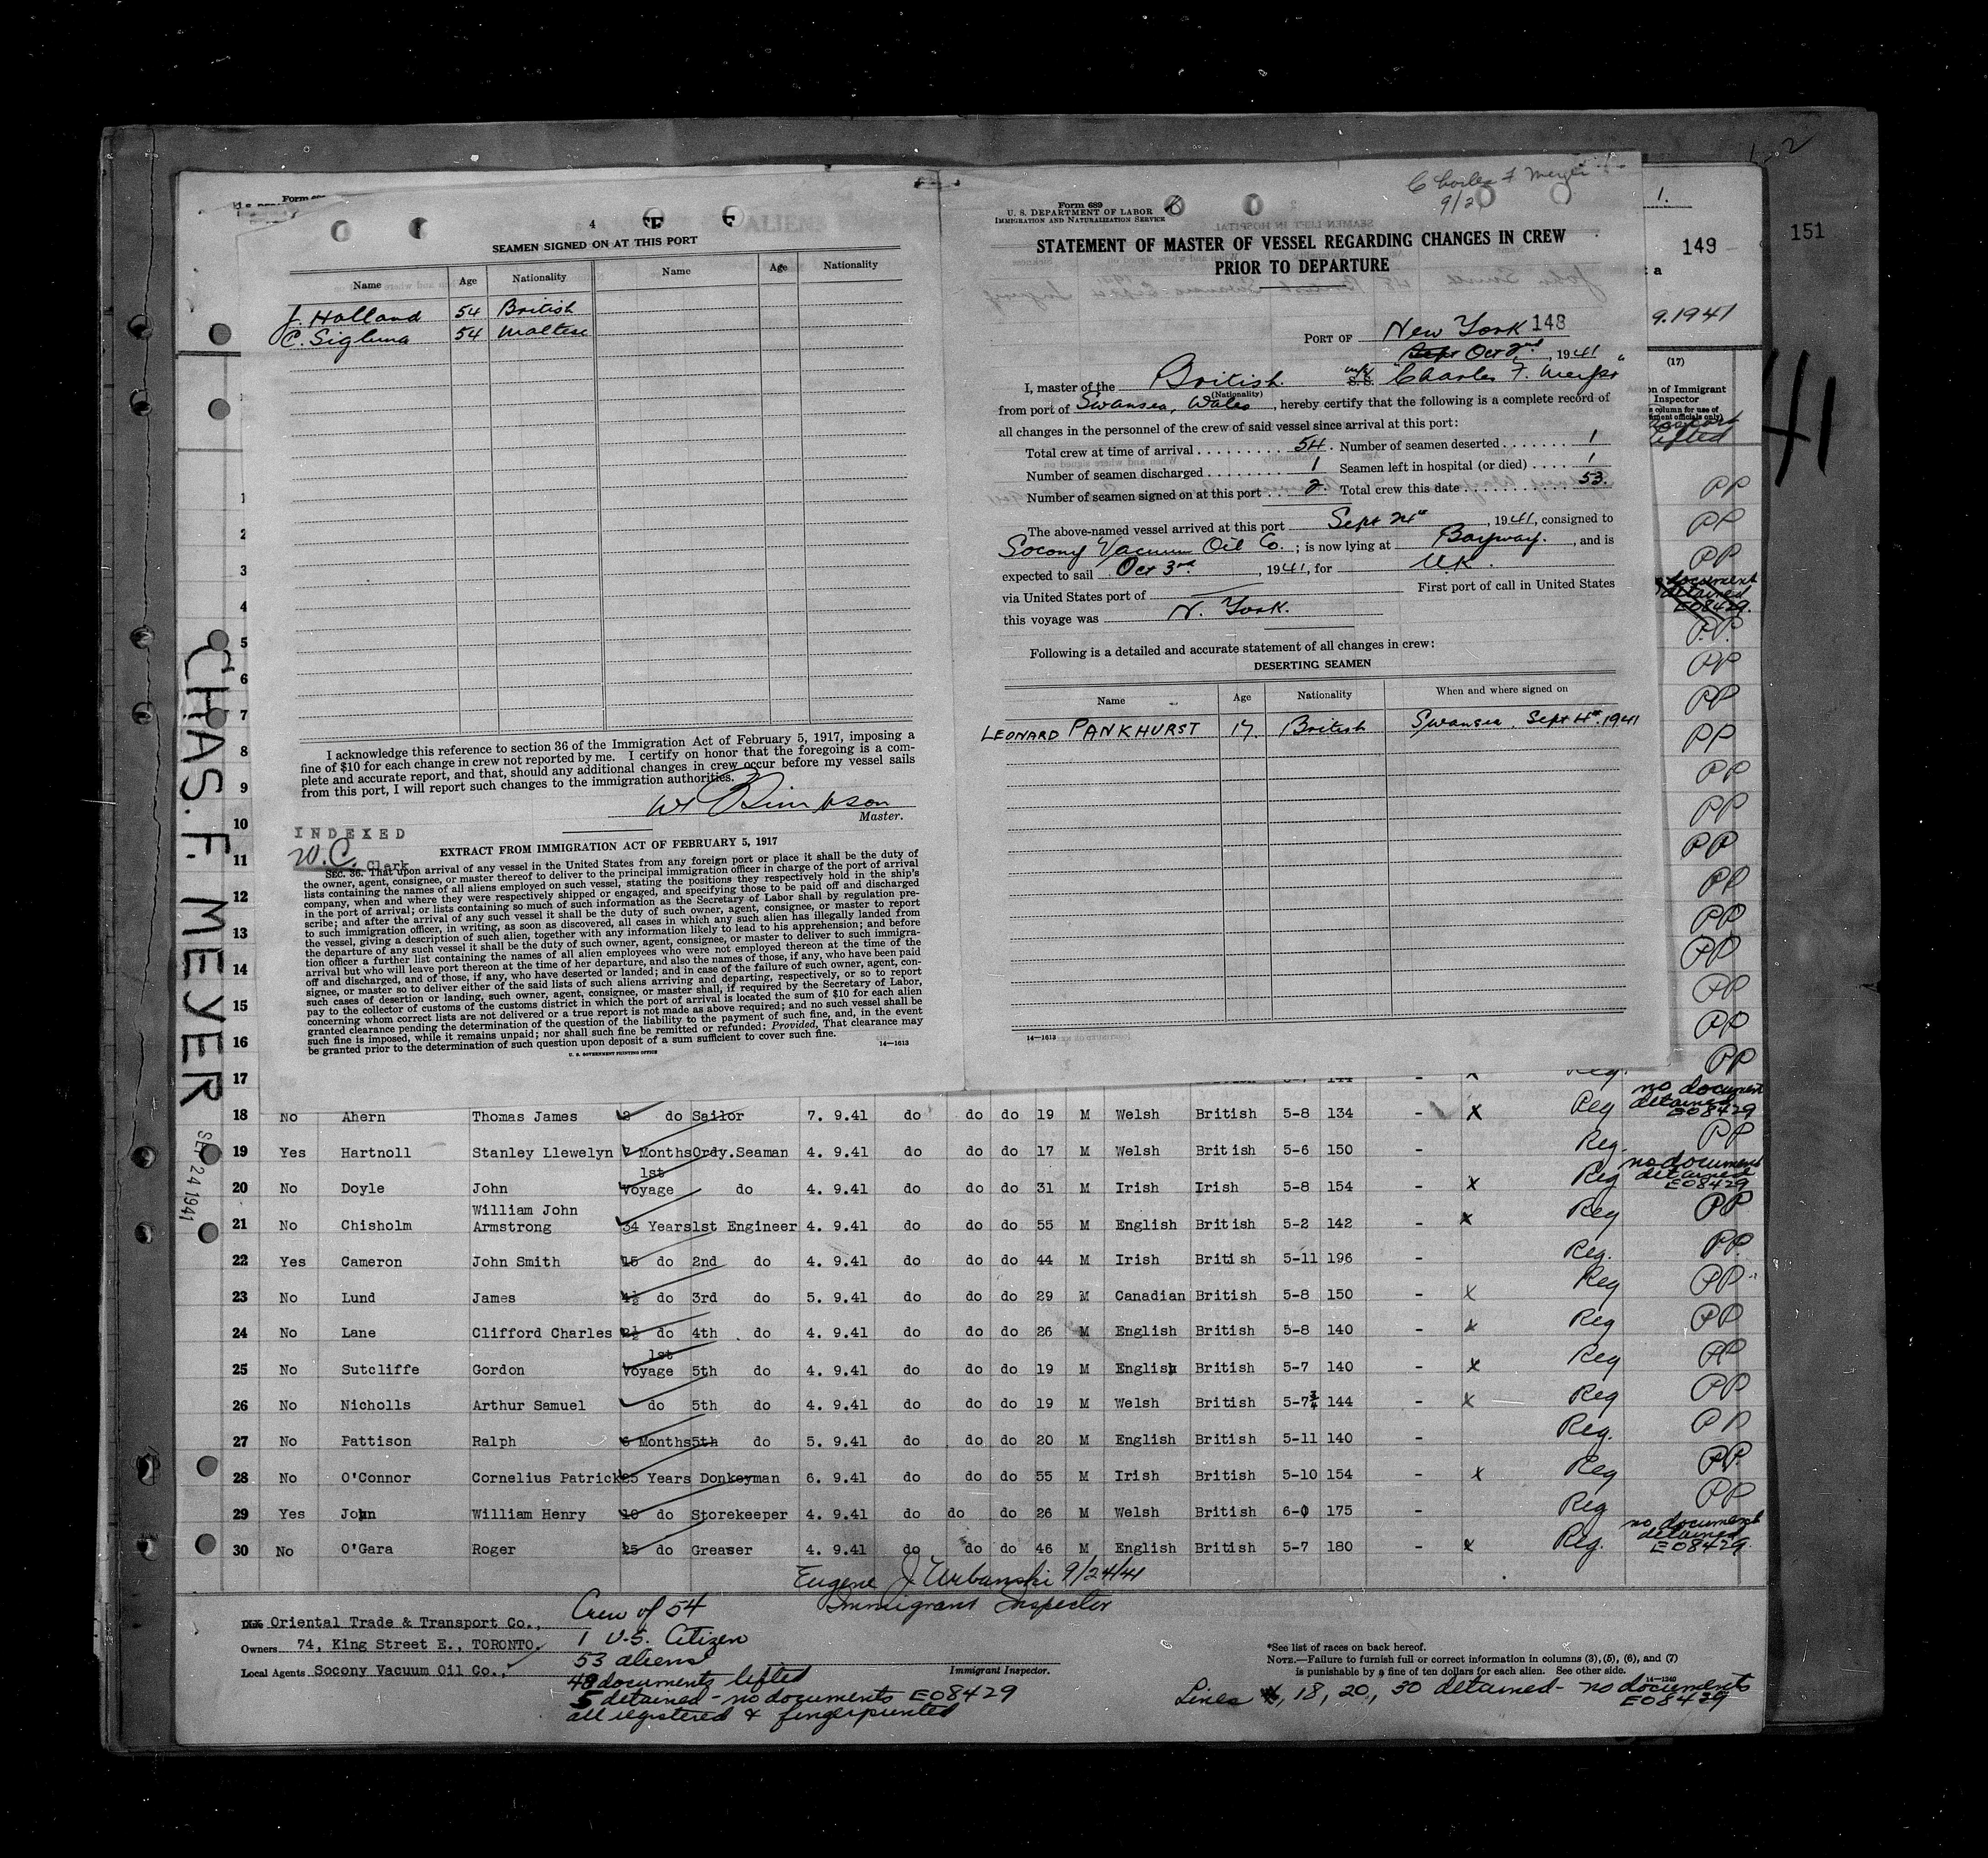 4
SEAMEN SIGNED ON AT THIS PORT
Name Age Nationality Name Age Nationality
J. Holland 54 British
C. Sigluna 54 Maltese
I acknowledge this reference to section 36 of the Immigration Act of February 5, 1917, imposing a
fine of $10 for each change in crew not reported by me. I certify on honor that the foregoing is a com-
plete and accurate report, and that, should any additional changes in crew occur before my vessel sails
from this port, I will report such changes to the immigration authorities.
Master.
INDEXED
W.C. Clerk
EXTRACT FROM IMMIGRATION ACT OF FEBRUARY 5, 1917
SEC. 36. That upon arrival of any vessel in the United States from any foreign port or place it shall be the duty of
the owner, agent, consignee, or master thereof to deliver to the principal immigration officer in charge of the port of arrival
lists containing the names of all aliens employed on such vessel, stating the positions they respectively hold in the ship's
company, when and where they were respectively shipped or engaged, and specifying those to be paid off and discharged
in the port of arrival; or lists containing so much of such information as the Secretary of Labor shall by regulation pre-
scribe; and after the arrival of any such vessel it shall be the duty of such owner, agent, consignee, or master to report
to such immigration officer, in writing, as soon as discovered, all cases in which any such alien has illegally landed from
the vessel, giving a description of such alien, together with any information likely to lead to his apprehension; and before
the departure of any such vessel it shall be the duty of such owner, agent, consignee, or master to deliver to such immigra-
tion officer a further list containing the names of all alien employees who were not employed thereon at the time of the
arrival but who will leave port thereon at the time of her departure, and also the names of those, if any, who have been paid
off and discharged, and of those, if any, who have deserted or landed; and in case of the failure of such owner, agent, con-
signee, or master so to deliver either of the said lists of such aliens arriving and departing, respectively, or so to report
such cases of desertion or landing, such owner, agent, consignee, or master shall, if required by the Secretary of Labor,
pay to the collector of customs of the customs district in which the port of arrival is located the sum of $10 for each alien
concerning whom correct lists are not delivered or a true report is not made as above required; and no such vessel shall be
granted clearance pending the determination of the question of the liability to the payment of such fine, and, in the event
such fine is imposed, while it remains unpaid; nor shall such fine be remitted or refunded: Provided, That clearance may
be granted prior to the determination of such question upon deposit of a sum sufficient to cover such fine.
U. S. GOVERNMENT PRINTING OFFICE
14—1613
Charles F Meyer
9/2
Form 689
U. S. DEPARTMENT OF LABOR
IMMIGRATION AND NATURALIZATION SERVICE
STATEMENT OF MASTER OF VESSEL REGARDING CHANGES IN CREW
PRIOR TO DEPARTURE
PORT OF New York 148
Sept Oct 2nd, 1941
I, master of the British S.S. "Charles F. Meyer"
(Nationality)
from port of Swansea, Wales, hereby certify that the following is a complete record of
all changes in the personnel of the crew of said vessel since arrival at this port:
Total crew at time of arrival 54. Number of seamen deserted 1
Number of seamen discharged 1 Seamen left in hospital (or died) 1
Number of seamen signed on at this port 2. Total crew this date 53.
The above-named vessel arrived at this port Sept 24th, 1941, consigned to
Socony Vacuum Oil Co.; is now lying at Bayway., and is
expected to sail Oct 3rd, 1941, for U.K.
via United States port of First port of call in United States
this voyage was N. York.
Following is a detailed and accurate statement of all changes in crew:
DESERTING SEAMEN
Name Age Nationality When and where signed on
LEONARD PANKHURST 17 British Swansea. Sept 4th. 1941
14—1613
1.
149
151
1 2
41
9.1941
(17)
n of Immigrant
Inspector
lifted
CHAS. F. MEYER
SEP 24 1941
1 PP
2 PP
3 PP
4 document detained E08429.
5 PP
6 PP
7 PP
8 PP
9 PP
10 PP
11 PP
12 PP
13 PP
14 PP
15 PP
16 PP
17 PP
18 No Ahern Thomas James 2 do Sailor 7. 9.41 do do do 19 M Welsh British 5-8 134 - x Reg no document detained E08429
19 Yes Hartnoll Stanley Llewelyn 7 Months Ordy.Seaman 4. 9.41 do do do 17 M Welsh British 5-6 150 - Reg. PP
20 No Doyle John 1st Voyage do 4. 9.41 do do do 31 M Irish Irish 5-8 154 - x Reg no document detained E08429
21 No Chisholm William John Armstrong 34 Years 1st Engineer 4. 9.41 do do do 55 M English British 5-2 142 - x Reg PP
22 Yes Cameron John Smith 15 do 2nd do 4. 9.41 do do do 44 M Irish British 5-11 196 - Reg. PP
23 No Lund James 4½ do 3rd do 5. 9.41 do do do 29 M Canadian British 5-8 150 - x Reg PP
24 No Lane Clifford Charles 2½ do 4th do 4. 9.41 do do do 26 M English British 5-8 140 - x Reg PP
25 No Sutcliffe Gordon 1st Voyage 5th do 4. 9.41 do do do 19 M English British 5-7 140 - x Reg PP
26 No Nicholls Arthur Samuel do 5th do 4. 9.41 do do do 19 M Welsh British 5-7¾ 144 - x Reg PP
27 No Pattison Ralph 6 Months 5th do 5. 9.41 do do do 20 M English British 5-11 140 - Reg. PP
28 No O'Connor Cornelius Patrick 25 Years Donkeyman 6. 9.41 do do do 55 M Irish British 5-10 154 - x Reg PP
29 Yes John William Henry 10 do Storekeeper 4. 9.41 do do do 26 M Welsh British 6-0 175 - Reg PP
30 No O'Gara Roger 25 do Greaser 4. 9.41 do do do 46 M English British 5-7 180 - x Reg. no document detained E08429
Eugene J Urbanski 9/24/41
Immigrant Inspector
Oriental Trade & Transport Co.,
Owners 74, King Street E., TORONTO.
Local Agents Socony Vacuum Oil Co.,
Crew of 54
1 U.S. Citizen
53 aliens
48 documents lifted
5 detained - no documents E08429
all registered & fingerprinted
Immigrant Inspector.
*See list of races on back hereof.
NOTE.—Failure to furnish full or correct information in columns (3), (5), (6), and (7)
is punishable by a fine of ten dollars for each alien. See other side.
14—1240
Lines 18, 20, 30 detained - no documents
E08429